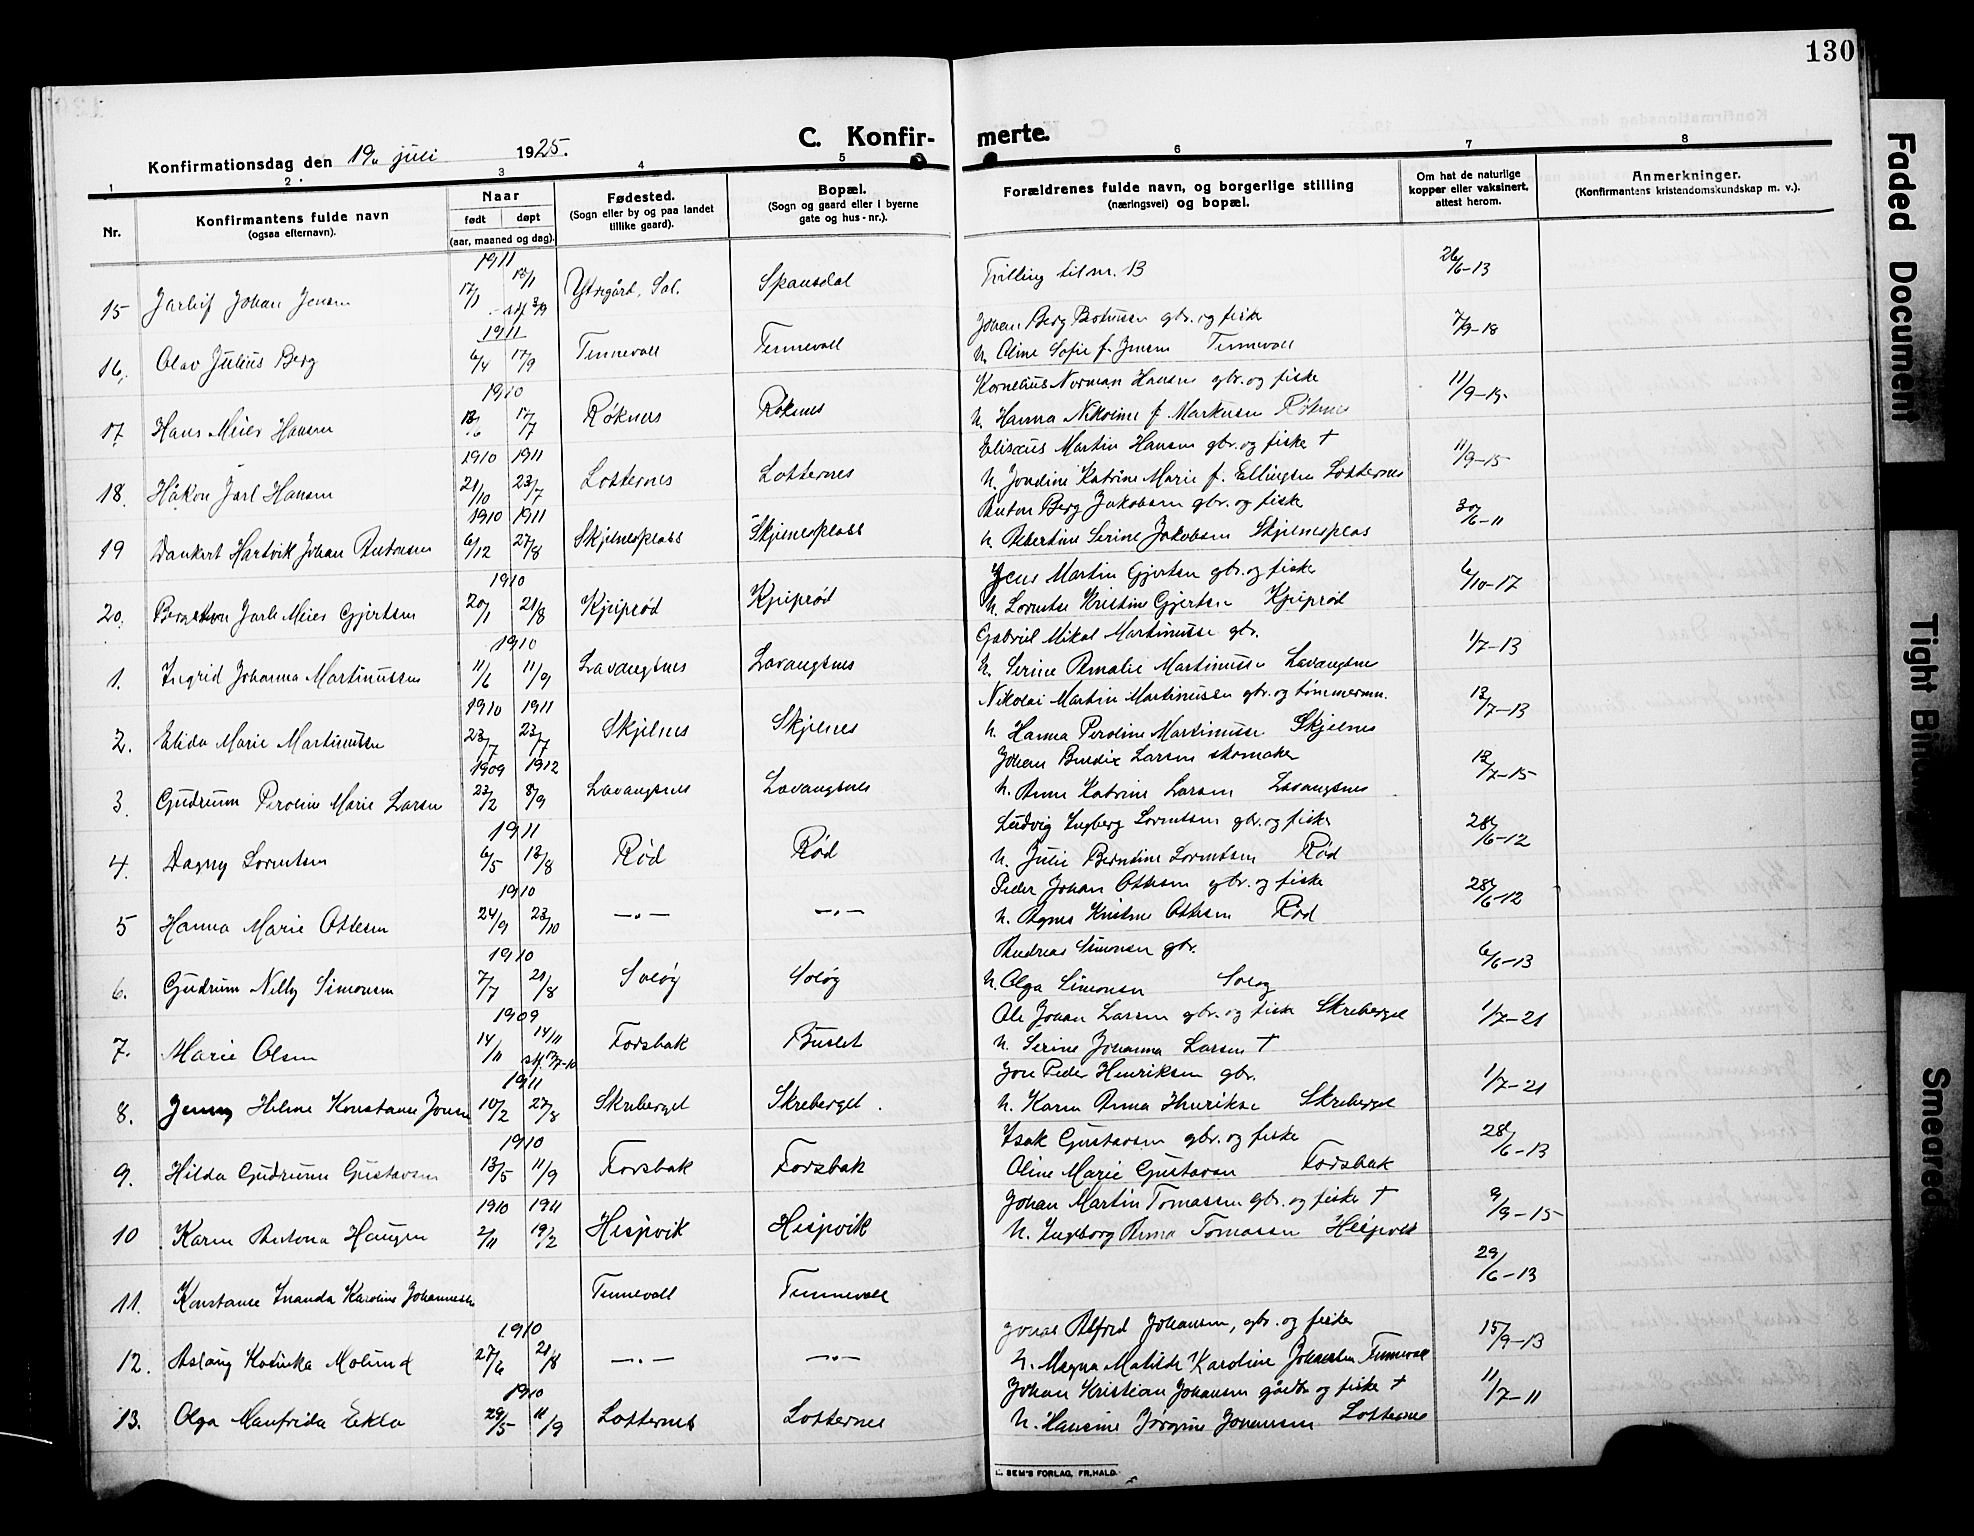 130
C. Konfirmerte.
Konfirmationsdag den 19. juli 1925.
1 2. 3 4 5 6 7 8
Nr.
Konfirmantens fulde navn
(ogsaa efternavn).
Naar
født døpt
(aar, maaned og dag).
Fødested.
(Sogn eller by og paa landet
tillike gaard).
Bopæl.
(Sogn og gaard eller i byerne
gate og hus-nr.).
Forældrenes fulde navn, og borgerlige stilling
(næringsvei) og bopæl.
Om hat de naturlige
kopper eller vaksinert,
attest herom.
Anmerkninger.
(Konfirmantens kristendomskundskap m. v.).
1911
15 Jarleif Johan Jensen 17/1 18/1 Ytregård, Sal. Spansdal Tvilling til nr. 13 26/6-13
1911
Johan Berg gbr. og fisker
16. Olav Julius Berg 6/4 17/9 Tennevoll Tennevoll h. Oline Sofie f. Jensen Tennevoll 7/9-18
1910
Kornelius Norman Hansen gbr. og fisker
17 Hans Meier Hansen 17/7 Røknes Røknes h. Hanna Nikoline f. Markusen Røknes
1910 1911
Elisæus Martin Hansen gbr. og fisker †
18. Håkon Jarl Hansen 21/10 23/7 Lotternes Lotternes h. Jordine Katrine Marie f. Ellingsen Lotternes 11/9-15
1910 1911
Anton Berg Jakobsen gbr. og fisker
19 Dankert Hartvik Johan Antonsen 6/12 27/8 Skjelnesplass Skjelnesplass h. Albertine Serine Jakobsen Skjelnesplas 30/6-11
1910
Jens Martin Gjertsen gbr. og fisker
20. Jarle Meier Gjertsen 20/1 21/8 Kjeiprød Kjeiprød h. Lorentse Kristine Gjertsen Kjeiprød 6/10-17
1910
Gabriel Mikal Martinussen gbr.
1. Ingrid Johanna Martinussen 11/6 11/9 Lavangsnes Lavangsnes h. Serine Amalie Martinussen Lavangsnes 1/7-13
1910 1911
Nikolai Martin Martinussen gbr. og tømmermn.
2. Elida Marie Martinussen 23/7 23/7 Skjelnes Skjelnes h. Hanna Peroline Martinussen Skjelnes 12/7-13
1909 1912
Johan Bendix Larsen skomaker
3. Gudrunn Peroline Marie Larsen 23/2 8/9 Lavangsnes Lavangsnes h. Anne Katrine Larsen Lavangsnes 12/7-15
1911
Ludvig Ingberg Lorentsen gbr. og fisker
4. Dagny Lorentsen 6/5 13/8 Rød Rød h. Julie Berntine Lorentsen Rød 28/6-12
1910
Peder Johan Ottesen gbr. og fisker
5 Hanna Marie Ottesen 24/9 23/10 —„— —„— h. Agnes Kristine Ottesen Rød 28/6-12
1910
Andreas Simonsen gbr.
6. Gudrunn Nelly Simonsen 7/7 21/8 Soløy Soløy h. Olga Simonsen Soløy 6/6-13
1909
Ole Johan Larsen gbr. og fisker Skreberget
7. Marie Olsen 14/11 14/11 Forsbak Buslet h. Serine Johanna Larsen † 1/7-21
1911
Jon Peder Henriksen gbr.
8. Jenny Helene Konstanse Jonsen 10/2 27/8 Skreberget Skreberget. h. Karen Anna Henriksen Skreberget 1/7-21
1910
Isak Gustavsen gbr. og fisker
9. Hilda Gudrunn Gustavsen 13/5 11/9 Forsbak Forsbak Oline Marie Gustavsen Forsbak 28/6-13
1910 1911
Johan Martin Tomassen gbr. og fisker †
10 Karen Antona Haugen 2/11 19/2 Hesjevik Hesjevik h. Ingborg Anna Tomassen Hesjevik 9/9-15
11. Konstanse Inanda Karoline Johannessen Tennevoll Tennevoll 29/6-13
1910
Jonas Alfred Johansen, gbr. og fisker
12. Aslaug Kosinka Molund 27/6 21/8 —„— —„— h. Magna Matilde Karoline Johansen Tennevoll 15/9-13
1910
Johan Kristian Johansen gårdbr. og fisker †
13. Olga Manfrida Eckbo 29/5 11/9 Lotternes Lotternes h. Hansine Jørgine Johansen Lotternes 11/7-11
SEM'S FORLAG, FR.HALD.
Faded Document
Tight Bin
Smeared